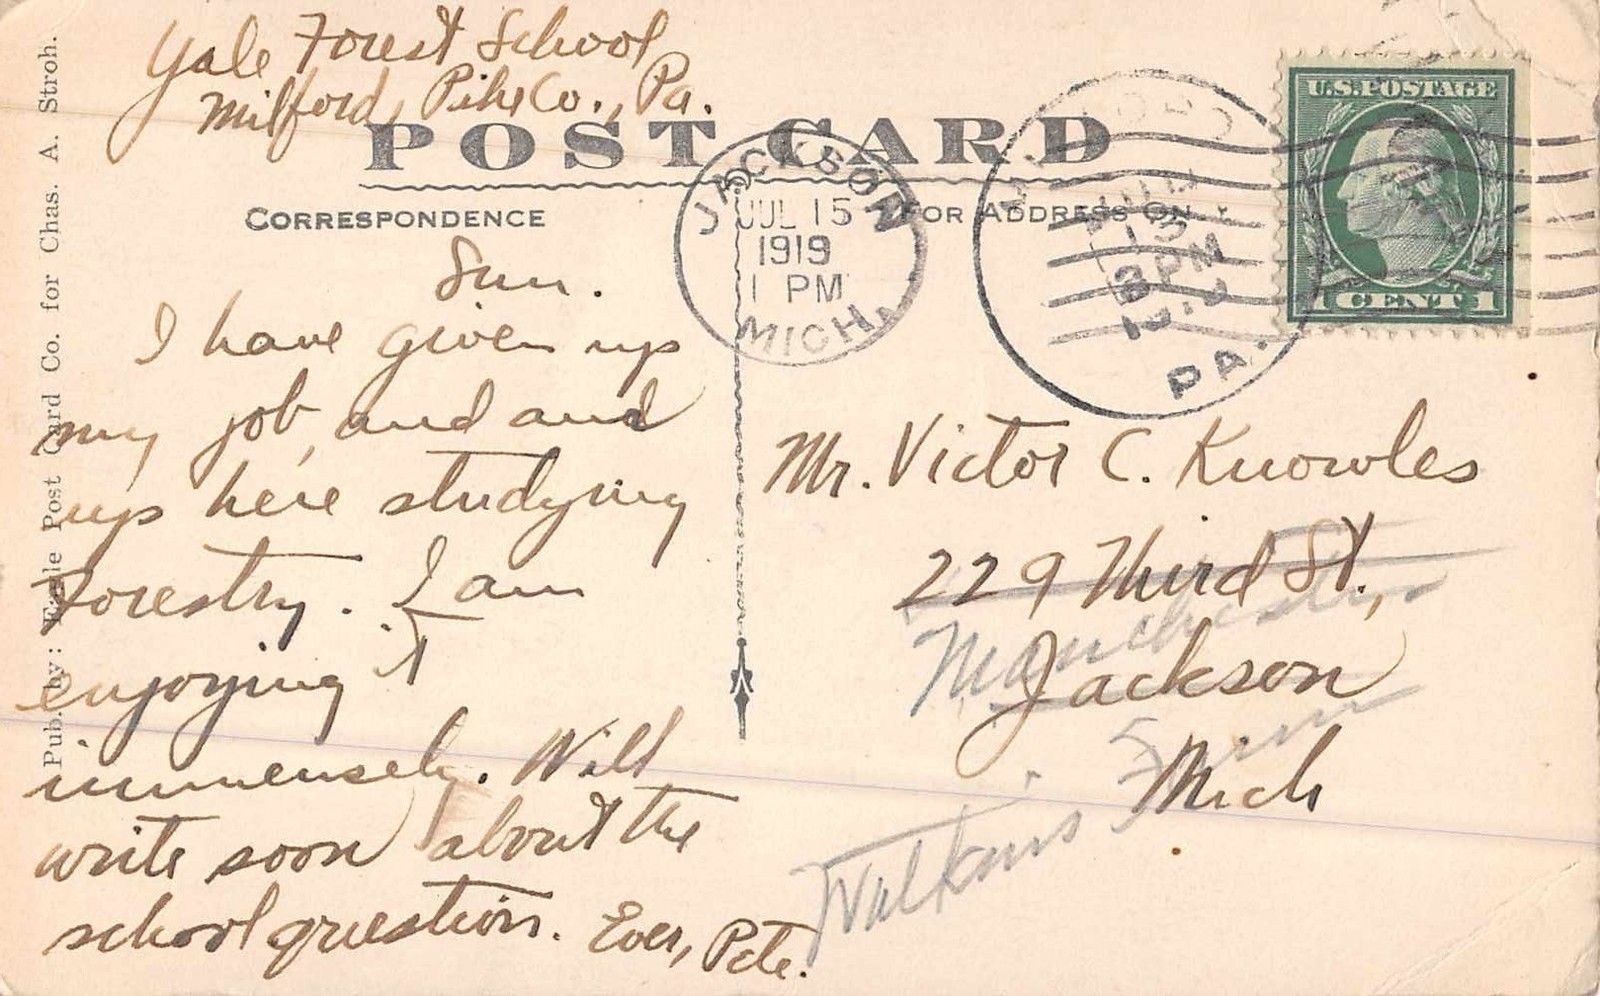 Yale Forest School
Milford, Pike Co., Pa.
POST CARD
CORRESPONDENCE
FOR ADDRESS ON
JACKSON
JUL 15
1919
1 PM
MICH.
13
3 PM
PA.
U.S. POSTAGE
1 CENT 1
Sun.
I have given up
my job, and and
up here studying
Forestry. I am
enjoying it
immensely. Will
write soon about the
school question. Ever, Pete.
Mr. Victor C. Knowles
229 Third St.,
Manchester
Jackson
Mich
Watkins Farm
Pub. by: Eagle Post Card Co. for Chas. A. Stroh.